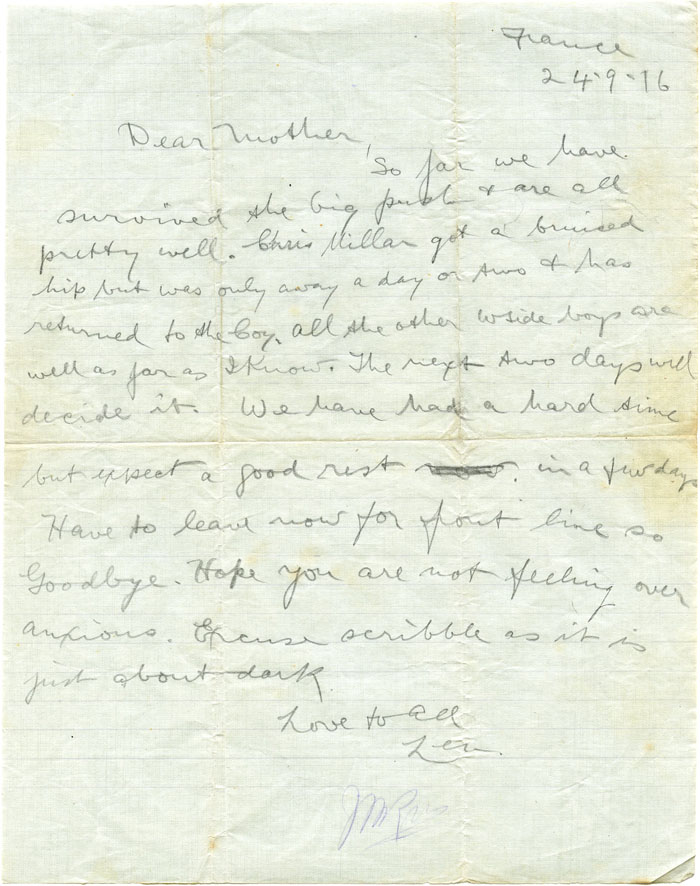 France
24-9-16
Dear Mother,
So far we have
survived the big push & are all
pretty well. Chris Millar got a bruised
hip but was only away a day or two & has
returned to the Coy. All the other wside boys are
well as far as I know. The next two days will
decide it. We have had a hard time
but expect a good rest in a few days
Have to leave now for front line so
Goodbye. Hope you are not feeling over
anxious. Excuse scribble as it is
just about dark
Love to all
Len.